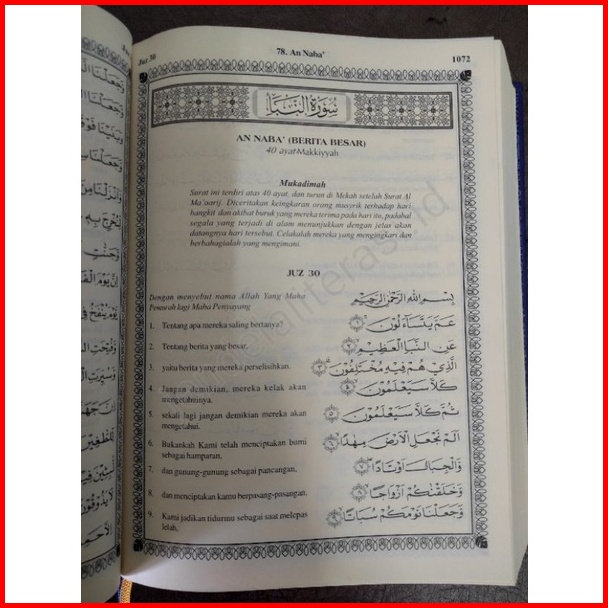 Juz 30
78. An Naba'
1072
سُورَةُ النَّبَأ
AN NABA' (BERITA BESAR)
40 ayat-Makkiyyah
Mukadimah
Surat ini terdiri atas 40 ayat, dan turun di Mekah setelah Surat Al
Ma'aarij. Diceritakan keingkaran orang musyrik terhadap hari
bangkit dan akibat buruk yang mereka terima pada hari itu, padahal
segala yang terjadi di alam menunjukkan dengan jelas akan
datangnya hari tersebut. Celakalah mereka yang mengingkari dan
berbahagialah yang mengimani.
JUZ 30
Dengan menyebut nama Allah Yang Maha
Pemurah lagi Maha Penyayang
بِسْمِ اللَّهِ الرَّحْمَٰنِ الرَّحِيمِ
1. Tentang apa mereka saling bertanya?
عَمَّ يَتَسَاءَلُونَ ۝١
2. Tentang berita yang besar,
عَنِ النَّبَإِ الْعَظِيمِ ۝٢
3. yaitu berita yang mereka perselisihkan.
الَّذِي هُمْ فِيهِ مُخْتَلِفُونَ ۝٣
4. Jangan demikian, mereka kelak akan
mengetahuinya.
كَلَّا سَيَعْلَمُونَ ۝٤
5. sekali lagi jangan demikian mereka akan
mengetahui.
ثُمَّ كَلَّا سَيَعْلَمُونَ ۝٥
6. Bukankah Kami telah menciptakan bumi
sebagai hamparan,
أَلَمْ نَجْعَلِ الْأَرْضَ مِهَٰدًا ۝٦
7. dan gunung-gunung sebagai pancangan,
وَالْجِبَالَ أَوْتَادًا ۝٧
8. dan menciptakan kamu berpasang-pasangan,
وَخَلَقْنَٰكُمْ أَزْوَاجًا ۝٨
9. Kami jadikan tidurmu sebagai saat melepas
lelah,
وَجَعَلْنَا نَوْمَكُمْ سُبَاتًا ۝٩